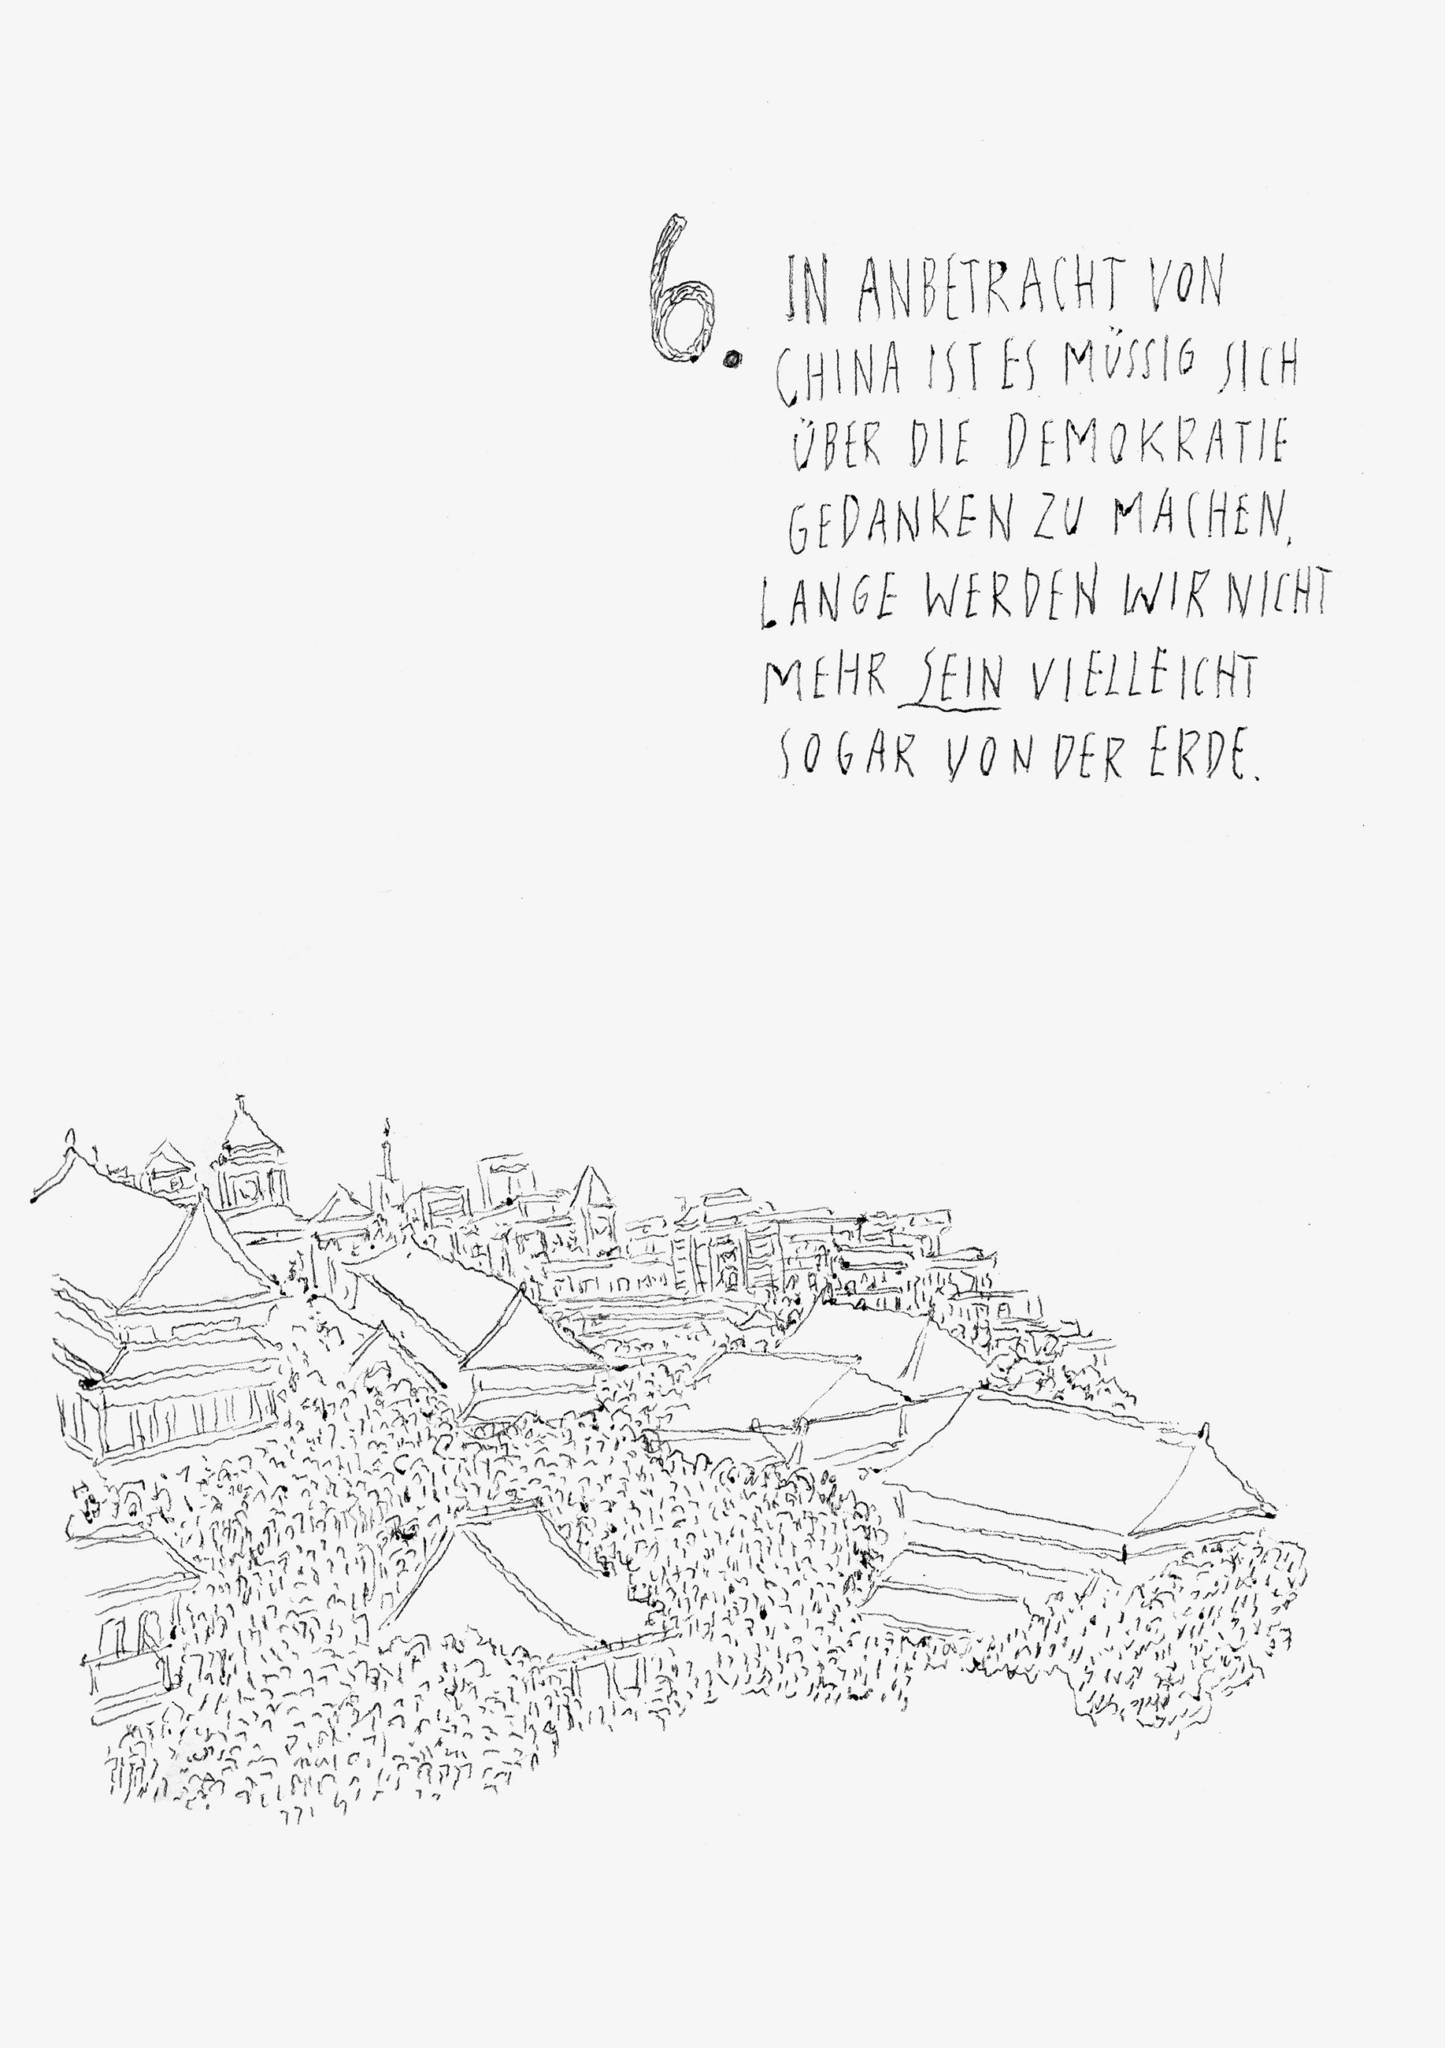 6. IN ANBETRACHT VON
CHINA IST ES MÜSSIG SICH
ÜBER DIE DEMOKRATIE
GEDANKEN ZU MACHEN.
LANGE WERDEN WIR NICHT
MEHR SEIN VIELLEICHT
SOGAR VON DER ERDE.